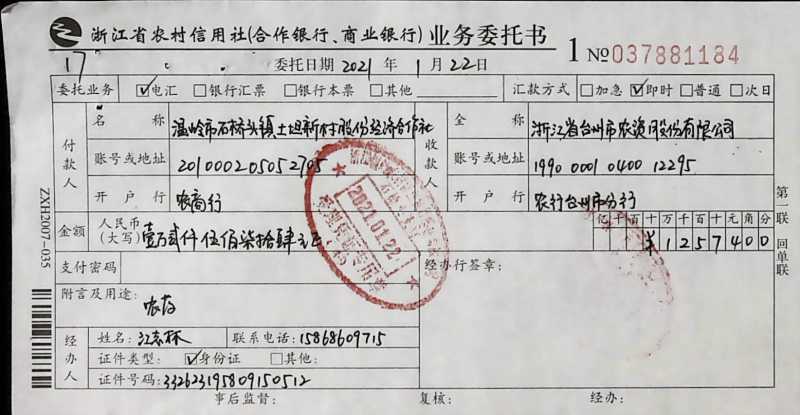 浙江省农村信用社(合作银行、商业银行)业务委托书
1 №037881184
17 委托日期 2021 年 1 月 22 日
委托业务 ☑电汇 □银行汇票 □银行本票 □其他 汇款方式 □加急 ☑即时 □普通 □次日
付款人 名称 温岭市石桥头镇土坦新村股份经济合作社
收款人 全称 浙江省台州市农资股份有限公司
账号或地址 201000205052705
账号或地址 1990 0001 0400 12295
开户行 农商行
开户行 农行台州市分行
金额 人民币(大写) 壹万贰仟伍佰柒拾肆元正
亿千百十万千百十元角分
¥1257400
支付密码
经办行签章:
附言及用途:
农药
经办人 姓名: 江志林 联系电话: 15868609715
证件类型: ☑身份证 □其他:
证件号码: 332623195809150512
事后监督: 复核: 经办:
第一联 回单联
ZXH2007-035
2021.01.22